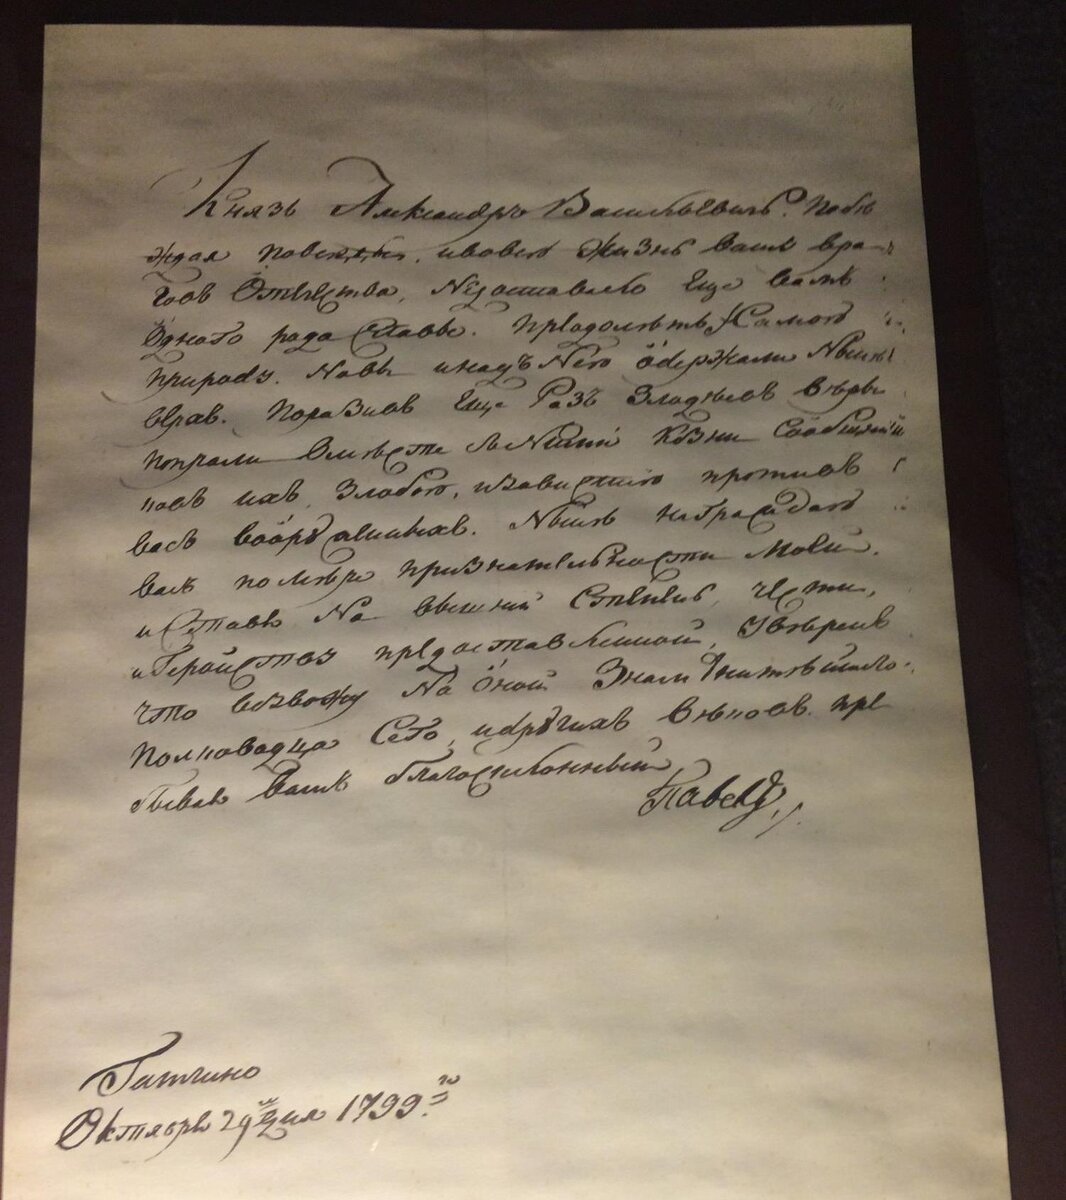 Князь Александръ Васильевичь. Побѣ
ждая повсюду, и во всю жизнь вашу вра
говъ Отечества, Недоставало Еще вамъ
Однаго рода славы. Преодолѣть и самою
природу. Но вы и надъ Нею одержали Нынѣ
верхъ. Поразивъ Еще Разъ Злодѣевъ вѣры
попрали Вмѣстѣ съ Ними Козни сообщни
ковъ ихъ Злобою, и завистию противъ
васъ вооруженныхъ. Нынѣ награждая
васъ по мѣрѣ признательности Моей.
и Ставя На вышний Степень, чести,
и Геройству предоставленной, Увѣренъ
что возвожу На Оной Знаменитѣйшаго
Полководца Сего, и другихъ Вѣковъ. пре
бываю Вамъ благосклонный
Павелъ.
Гатчино
Октября 29 дня 1799.го